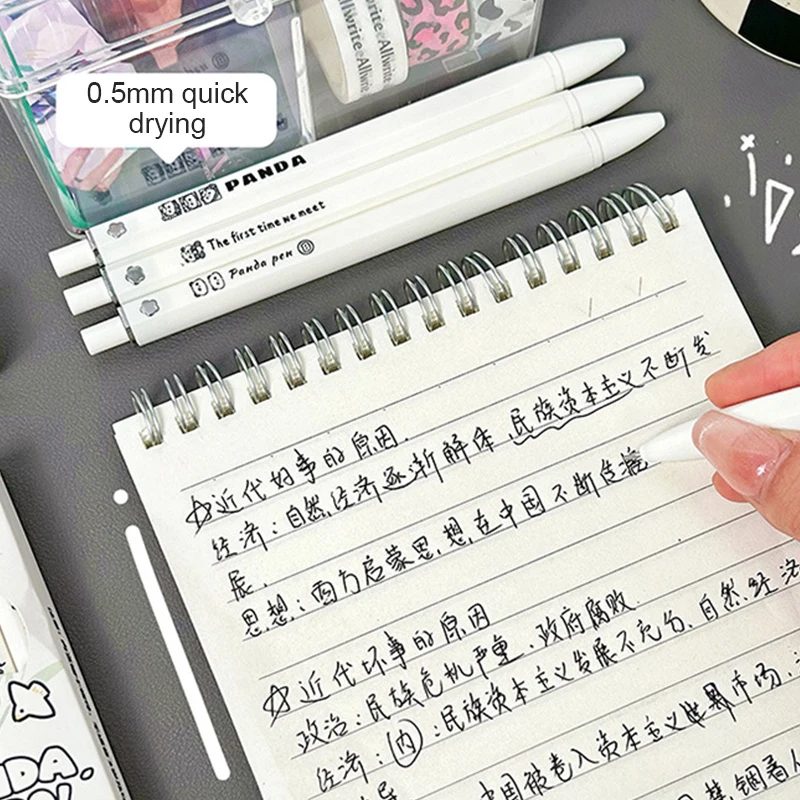 0.5mm quick
drying
Allwrite Allwrite
PANDA
The first time we meet
Panda pen
☆近代好事的原因.
经济:自然经济逐渐解体,民族资本主义不断发
展.
思想:西方启蒙思想在中国不断传播
☆近代坏事的原因
政治:民族危机严重、政府腐败.
经济:(内):民族资本主义发展不充分、自然经济
中国被卷入资本主义世界市场,